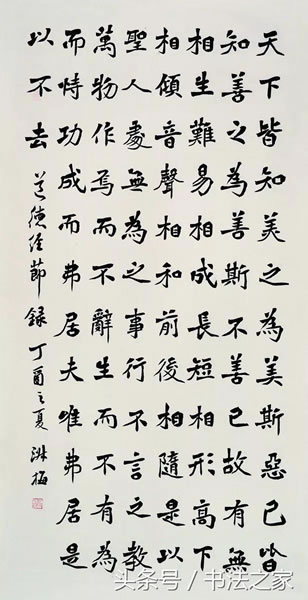 天下皆知美之為美斯惡已皆
知善之為善斯不善已故有無
相生難易相成長短相形高下
相傾音聲相和前後相隨是以
聖人處無為之事行不言之教
萬物作焉而不辭生而不有為
而恃功成而弗居夫唯弗居是
以不去 道德经節録 丁酉之夏
头条号 / 书法之家